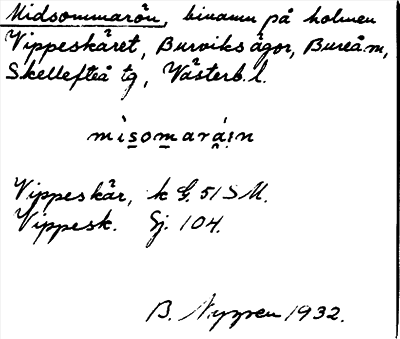 Midsommarön, binamn på holmen
Vippeskäret, Burviks ägor, Bureå m,
Skellefteå tg, Västerb. l.
mìsomaràin
Vippeskär, k G. 51 S M.
Vippesk. Gj. 104.
B. Nygren 1932.